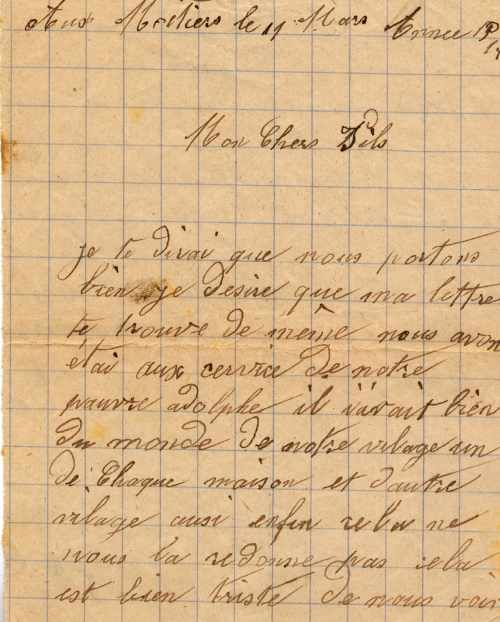 Aux Métiers le 11 Mars Année
Mon Chers Fils
je te dirai que nous portons
bien je desire que ma lettre
te trouve de même nous avon
étai aux cervice de notre
pauvre adolphe il i avait bien
du monde de notre vilage un
de Chaque maison et d'autre
vilage ausi enfin cela ne
nous la redonne pas cela
est bien triste de nous voir